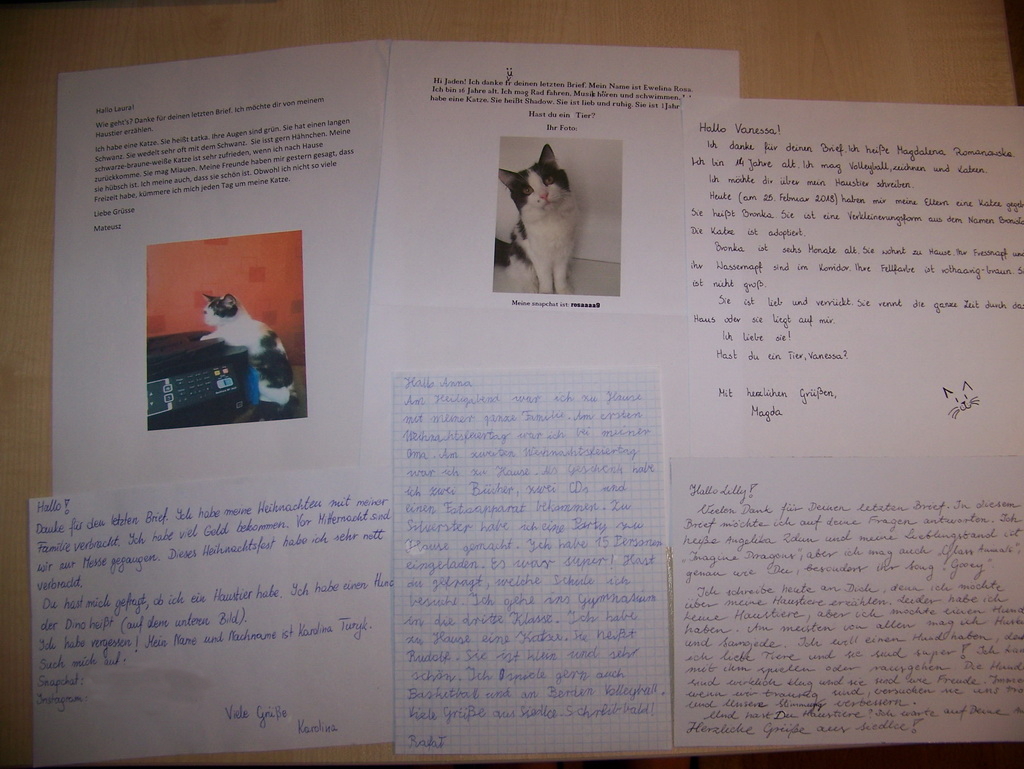 Hallo Laura!
Wie geht's? Danke für deinen letzten Brief. Ich möchte dir von meinem
Haustier erzählen.
Ich habe eine Katze. Sie heißt Łatka. Ihre Augen sind grün. Sie hat einen langen
Schwanz. Sie wedelt sehr oft mit dem Schwanz. Sie isst gern Hähnchen. Meine
schwarze-braune-weiße Katze ist sehr zufrieden, wenn ich nach Hause
zurückkomme. Sie mag Miauen. Meine Freunde haben mir gestern gesagt, dass
sie hübsch ist. Ich meine auch, dass sie schön ist. Obwohl ich nicht so viele
Freizeit habe, kümmere ich mich jeden Tag um meine Katze.
Liebe Grüsse
Mateusz
Hi Jaden! Ich danke für deinen letzten Brief. Mein Name ist Ewelina Rosa.
Ich bin 16 Jahre alt. Ich mag Rad fahren, Musik hören und schwimmen.
habe eine Katze. Sie heißt Shadow. Sie ist lieb und ruhig. Sie ist 1 Jahr
Hast du ein Tier?
Ihr Foto:
Meine snapchat ist: rosaaaa9
Hallo Vanessa!
Ich danke für deinen Brief. Ich heiße Magdalena Romanowska.
Ich bin 14 Jahre alt. Ich mag Volleyball, zeichnen und Katzen.
Ich möchte dir über mein Haustier schreiben.
Heute (am 25. Februar 2018) haben mir meine Eltern eine Katze
Sie heißt Bronka. Sie ist eine Verkleinerungsform aus dem Namen
Die Katze ist adoptiert.
Bronka ist sechs Monate alt. Sie wohnt zu Hause. Ihr Fressnapf und
ihr Wassernapf sind im Korridor. Ihre Fellfarbe ist rothaarig-braun.
ist nicht groß.
Sie ist lieb und verrückt. Sie rennt die ganze Zeit durch das
Haus oder sie liegt auf mir.
Ich liebe sie!
Hast du ein Tier, Vanessa?
Mit herzlichen Grüßen,
Magda
Hallo!
Danke für den letzten Brief. Ich habe meine Weihnachten mit meiner
Familie verbracht. Ich habe viel Geld bekommen. Vor Mitternacht sind
wir zur Messe gegangen. Dieses Weihnachtsfest habe ich sehr nett
verbracht.
Du hast mich gefragt, ob ich ein Haustier habe. Ich habe einen Hund
der Dino heißt (auf dem unteren Bild).
Ich habe vergessen! Mein Name und Nachname ist Karolina Turyk.
Such mich auf:
Snapchat:
Instagram:
Viele Grüße
Karolina
Hallo Anna
Am Heiligabend war ich zu Hause
mit meiner ganze Familie. Am ersten
Weihnachtsfeiertag war ich bei meiner
Oma. Am zweiten Weihnachtsfeiertag
war ich zu Hause. Als Geschenk habe
ich zwei Bücher, zwei CDs und
einen Fotoapparat bekommen. Zu
Silvester habe ich eine Party zu
Hause gemacht. Ich habe 15 Personen
eingeladen. Es war super! Hast
du gefragt, welche Schule ich
besuche. Ich gehe ins Gymnasium
in die dritte Klasse. Ich habe
zu Hause eine Katze. Sie heißt
Rudolf. Sie ist klein und sehr
schön. Ich spiele gern auch
Basketball und an Borden Volleyball.
Viele Grüße aus Siedlce. Schreib bald!
Rafał
Hallo Lilly!
Vielen Dank für Deinen letzten Brief. In diesem
Brief möchte ich auf deine Fragen antworten. Ich
heiße Angelika Zdun und meine Lieblingsband ist
"Imagine Dragons", aber ich mag auch "Glass Animals",
genau wie Du, besonders ihr Song "Gooey".
Ich schreibe heute an Dich, denn ich möchte
über meine Haustiere erzählen. Leider habe ich
keine Haustiere, aber ich möchte einen Hund
haben. Am meisten von allen mag ich
und Samojede. Ich will einen Hund haben,
ich liebe Tiere und sie sind super!
mit ihm spielen oder rausgehen. Die Hunde
sind wirklich klug und sie sind wie Freunde.
wenn wir traurig sind, versuchen sie uns
und unsere Stimmung verbessern.
Und hast Du Haustiere? Ich warte auf Deine
Herzliche Grüße aus Siedlce!